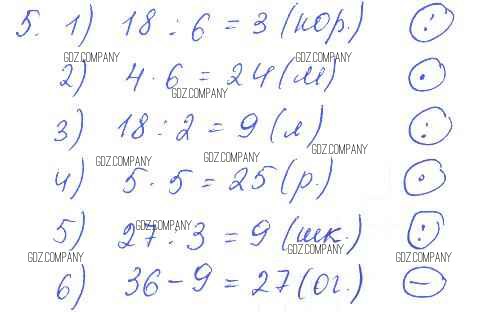 5. 1) 18 : 6 = 3 (кор.) :
GDZ.COMPANY GDZ.COMPANY
2) 4 · 6 = 24 (м) ·
GDZ.COMPANY
3) 18 : 2 = 9 (л) :
GDZ.COMPANY
GDZ.COMPANY GDZ.COMPANY
4) 5 · 5 = 25 (р.) ·
GDZ.COMPANY
5) 27 : 3 = 9 (шк.) :
GDZ.COMPANY GDZ.COMPANY GDZ.COMPANY
6) 36 - 9 = 27 (ог.) -